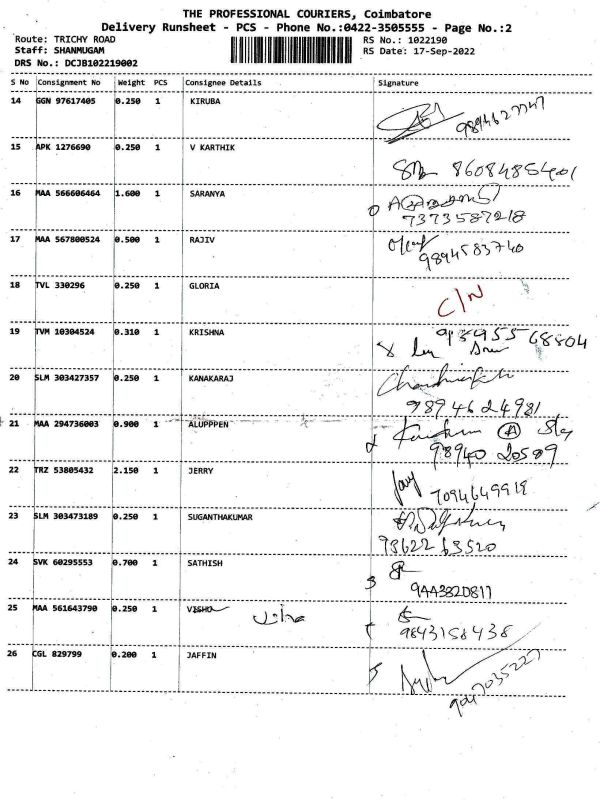 THE PROFESSIONAL COURIERS, Coimbatore
Delivery Runsheet - PCS - Phone No.:0422-3505555 - Page No.:2
Route: TRICHY ROAD RS No.: 1022190
Staff: SHANMUGAM RS Date: 17-Sep-2022
DRS No.: DCJB102219002
S No Consignment No Weight PCS Consignee Details Signature
14 GGN 97617405 0.250 1 KIRUBA
9894627747
15 APK 1276690 0.250 1 V KARTHIK
8608485401
16 MAA 566606464 1.600 1 SARANYA
7373587218
17 MAA 567800524 0.500 1 RAJIV
9894583740
18 TVL 330296 0.250 1 GLORIA
C/N
19 TVM 10304524 0.310 1 KRISHNA
20 SLM 303427357 0.250 1 KANAKARAJ
9894624981
21 MAA 294736003 0.900 1 ALUPPPEN
98940 20509
22 TRZ 53805432 2.150 1 JERRY
7094649919
23 SLM 303473189 0.250 1 SUGANTHAKUMAR
24 SVK 60295553 0.700 1 SATHISH
9443820811
25 MAA 561643790 0.250 1 VISHU
9843158438
26 CGL 829799 0.200 1 JAFFIN